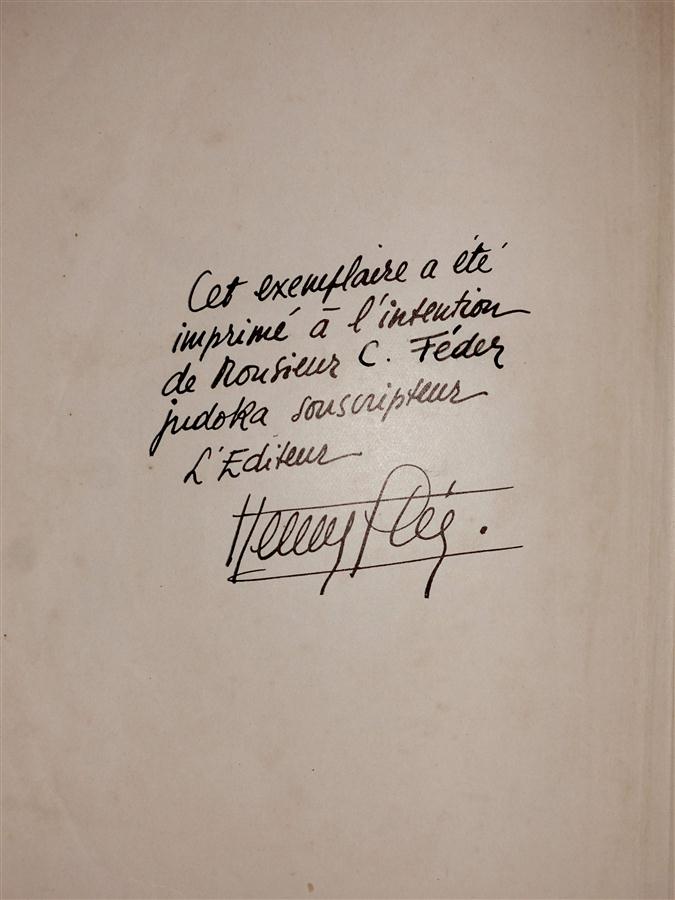 Cet exemplaire a été
imprimé à l'intention
de Monsieur C. Féder
judoka souscripteur
L'Editeur
Henry Plée.